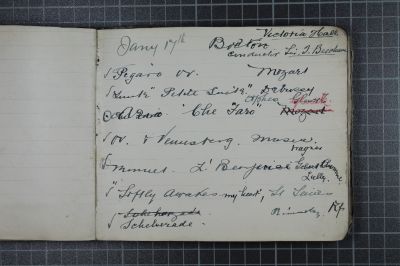 Victoria Hall
Jany 17th Bolton
Conductor Sir T. Beecham
√ Figaro Ov. Mozart
√ Suite "Petite Suite" Debussy
Orpheo Gluck
Aria "Che Faro" Mozart
√ Ov. & Venusberg. Music.
Wagner
√ Menuet. L' Bourgeois Gentilhomme
Lully.
√ "Softly Awakes my heart", St Saens
√
√ Scheherade. Rimsky. K/.